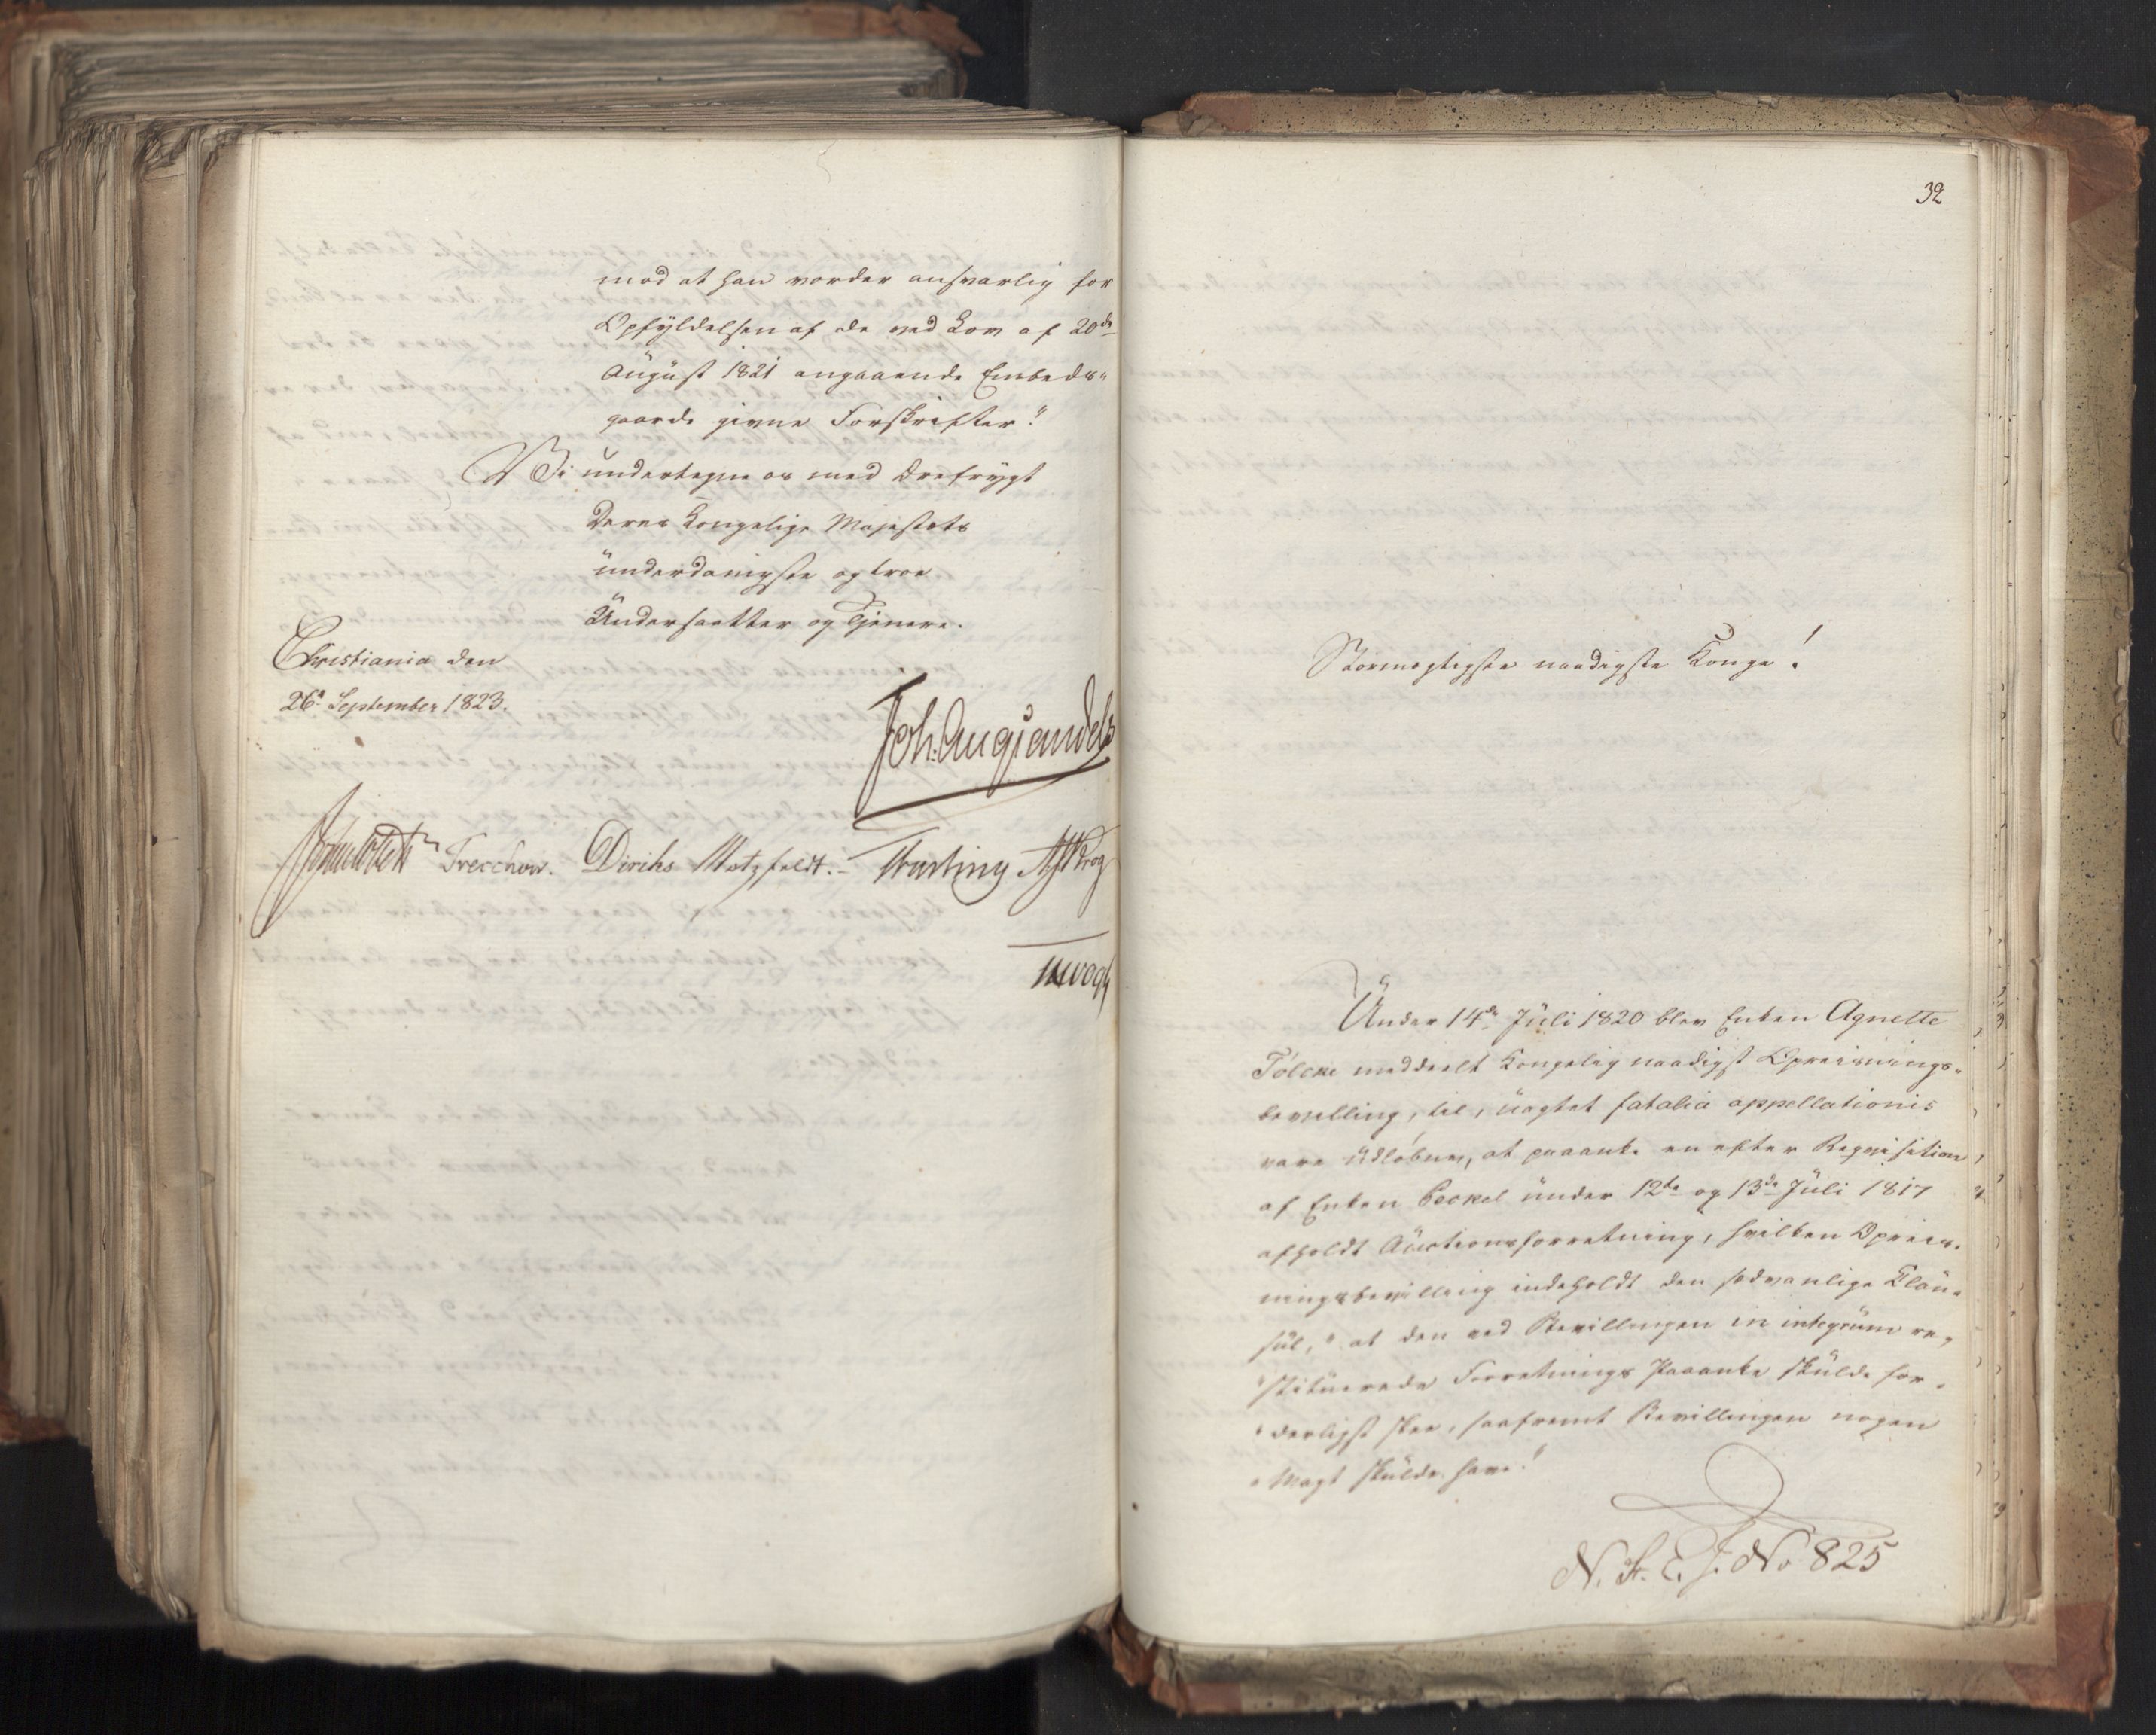 mod at han vorder ansvarlig for
Opfyldelsen af de ved Lov af 20de
August 1821 angaaende Embeds"
gaarde givne Forskrifter."
Vi undertegne os med Ærefrygt
Deres Kongelige Majestæts
underdanigste og troe
Undersaatter og Tjenere.
Christiania den
26de September 1823.
Joh. Aug Sandels
Treschow. Diriks Motzfeldt. Fasting Krog
Vogt
32
Stormægtigste naadigste Konge!
Under 14de Juli 1820 blev Enken Agnette
Tólcke meddeelt Kongelig naadigst Opreisnings-
bevilling, til, uagtet fatalia appellationis
vare udløbne, at paaanke en efter Reqvisition
af Enken Peckel under 12te og 13de Juli 1817
afholdt Auctionsforretning, hvilken Opreis-
ningsbevilling indeholdt den sædvanlige Clau-
sul, "at den ved Bevillingen in integrum re-
"stituerede Forretnings Paaanke skulde for-
"derligst skee, saafremt Bevillingen nogen
"Magt skulde have."
N. St. E. J. No 825